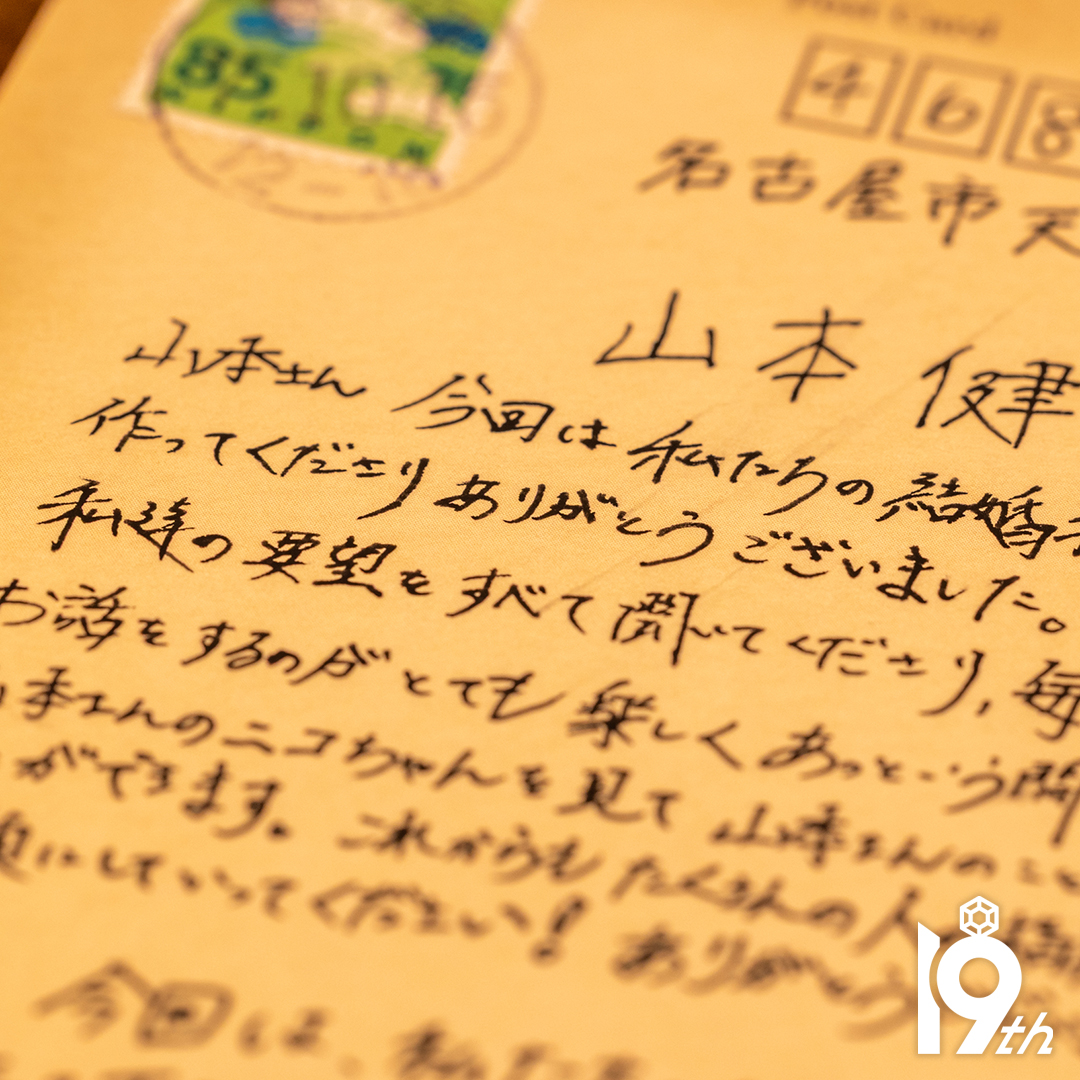 Post Card
85
468
名古屋市天
山本 健
山本さん 今回は私たちの結婚
作ってくださりありがとうございました。
私達の要望をすべて聞いてくださり、毎
お話をするのがとても楽しくあっという間
本さんのニコちゃんを見て 山本さんのこと
ができます。これからもたくさんの人
にしていってください！ ありがとう
今回は、私たち
19th